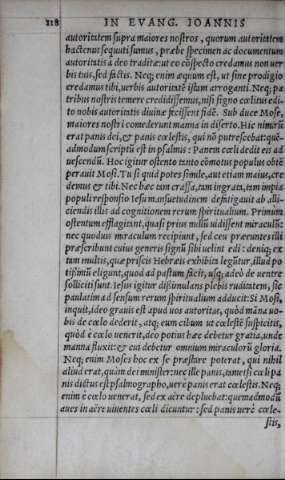 118 IN EVANG. IOANNIS
autoritatem supra maiores nostros, quorum autoritatem
hactenus sequuti sumus, præbe specimen ac documentum
autoritatis à deo traditæ: ut eo cōspecto credamus non uer
bis tuis, sed factis. Neq; enim æquum est, ut sine prodigio
credamus tibi, uerbis autoritatē istam arroganti. Neq; pa
tribus nostris temere credidissemus, nisi signo cœlitus edi-
to nobis autoritatis diuinæ fecissent fidē. Sub duce Mose,
maiores nostri comederunt manna in deserto. Hic nimirū
erat panis dei, & panis cœlestis, qui nō putrescebat: quē-
admodum scriptū est in psalmis: Panem cœli dedit eis ad
uescendū. Hoc igitur ostento tanto cōmotus populus obtē
perauit Mosi. Tu si quid potes simile, aut etiam maius, cre
demus & tibi. Nec hæc tam crassa, tam ingrata, tam impia
populi responsio Iesum mansuetudinem defatigauit ab alli-
ciendis illis ad cognitionem rerum spiritualium. Primum
ostentum efflagitant, quasi prius nullū uidissent miraculū:
nec quoduis miraculum recipiunt, sed ceu præeuntes illi
præscribunt cuius generis signū sibi uelint edi: deniq; ex
tam multis, quæ priscis Hebræis exhibita legūtur, illud po
tissimū eligunt, quod ad pastum facit, usq; adeò de uentre
solliciti sunt. Iesus igitur dissimulans plebis ruditatem, sic
paulatim ad sensum rerum spiritualium adducit: Si Mosi,
inquit, ideo grauis est apud uos autoritas, quòd māna uo-
bis de cœlo dederit, atq; eum cibum ut cœlestē suspicitis,
quòd è cœlo uenerit, deo potius hæc debetur gratia, unde
manna fluxit: & cui debetur omnium miraculorū gloria.
Neq; enim Moses hoc ex se præstare poterat, qui nihil
aliud erat, quàm dei minister: nec ille panis, tametsi cœli pa
nis dictus est psalmographo, uerè panis erat cœlestis. Neq;
enim è cœlo uenerat, sed ex aëre depluebat: quemadmodū
aues in aëre uiuentes cœli dicuntur: sed panis uerè cœle-
stis,